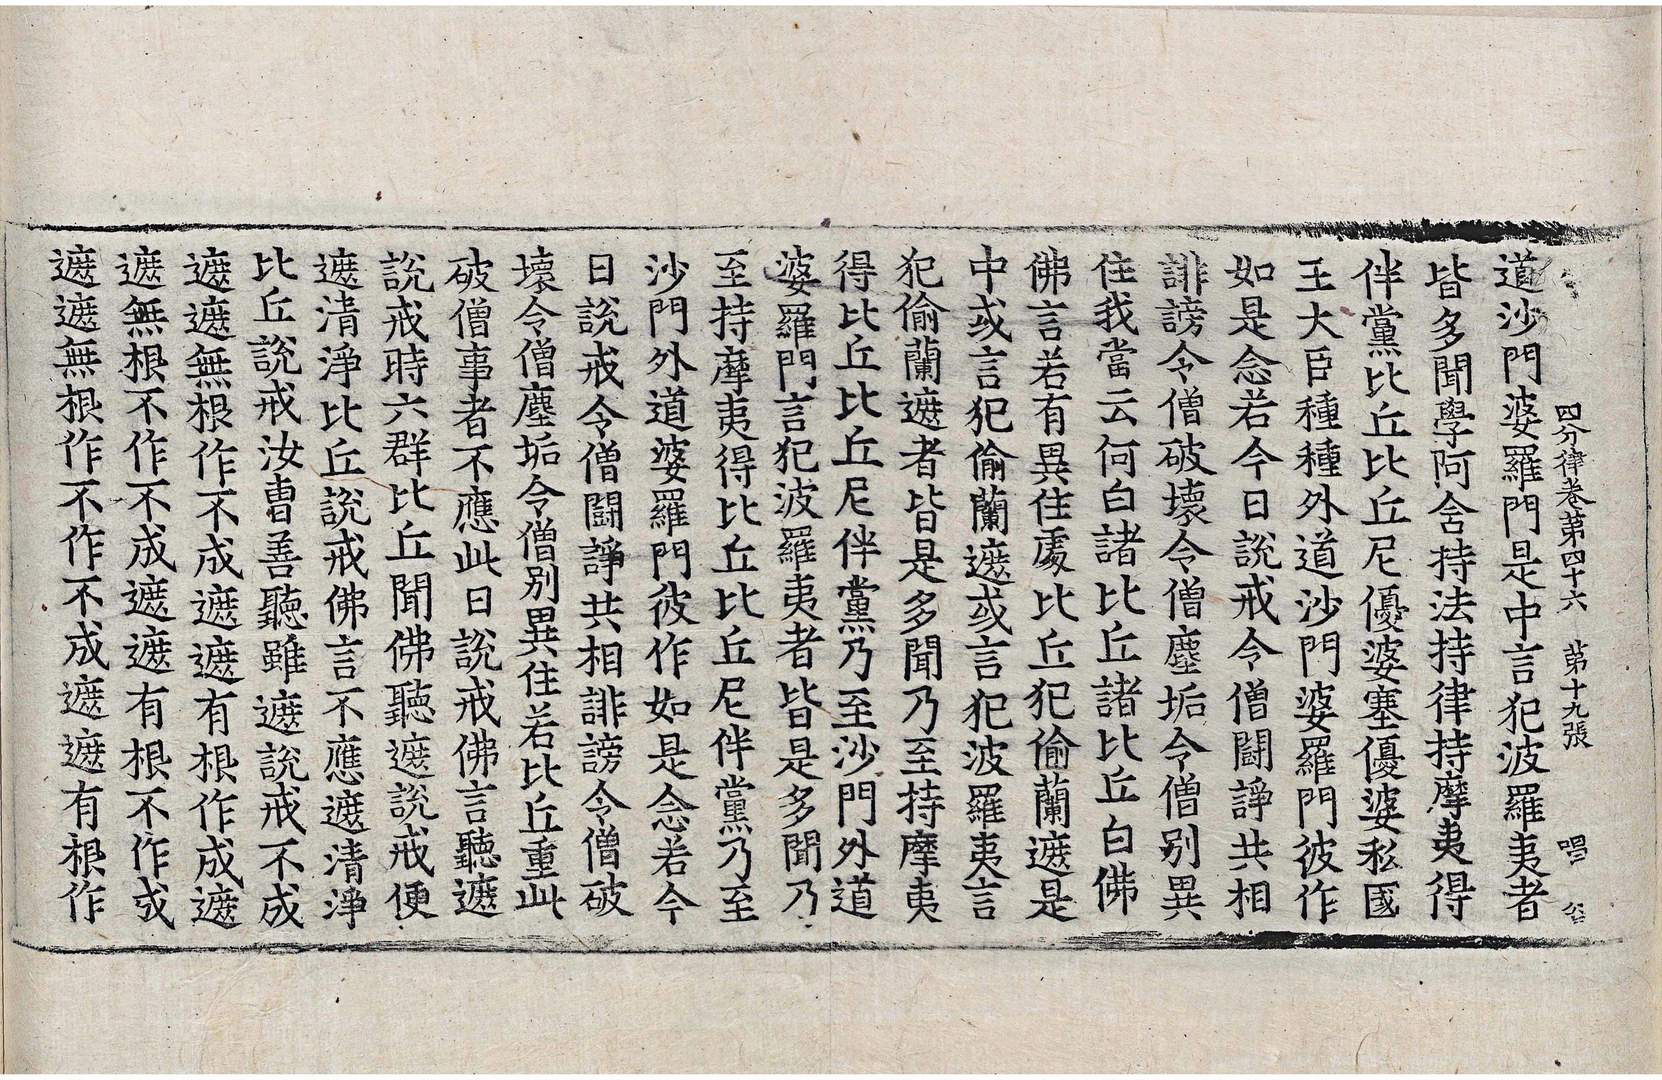 四分律卷第四十六 第十九張 唱
道沙門婆羅門是中言犯波羅夷者
皆多聞學阿含持法持律持摩夷得
伴黨比丘比丘尼優婆塞優婆私國
王大臣種種外道沙門婆羅門彼作
如是念若今日說戒令僧鬪諍共相
誹謗令僧破壞令僧塵垢令僧別異
住我當云何白諸比丘諸比丘白佛
佛言若有異住處比丘犯偷蘭遮是
中或言犯偷蘭遮或言犯波羅夷言
犯偷蘭遮者皆是多聞乃至持摩夷
得比丘比丘尼伴黨乃至沙門外道
婆羅門言犯波羅夷者皆是多聞乃
至持摩夷得比丘比丘尼伴黨乃至
沙門外道婆羅門彼作如是念若今
日說戒令僧鬪諍共相誹謗令僧破
壞令僧塵垢令僧別異住若比丘重此
破僧事者不應此日說戒佛言聽遮
說戒時六群比丘聞佛聽遮說戒便
遮清淨比丘說戒佛言不應遮清淨
比丘說戒汝曹善聽雖遮說戒不成
遮遮無根作不成遮遮有根作成遮
遮無根不作不成遮遮有根不作成
遮遮無根作不作不成遮遮有根作